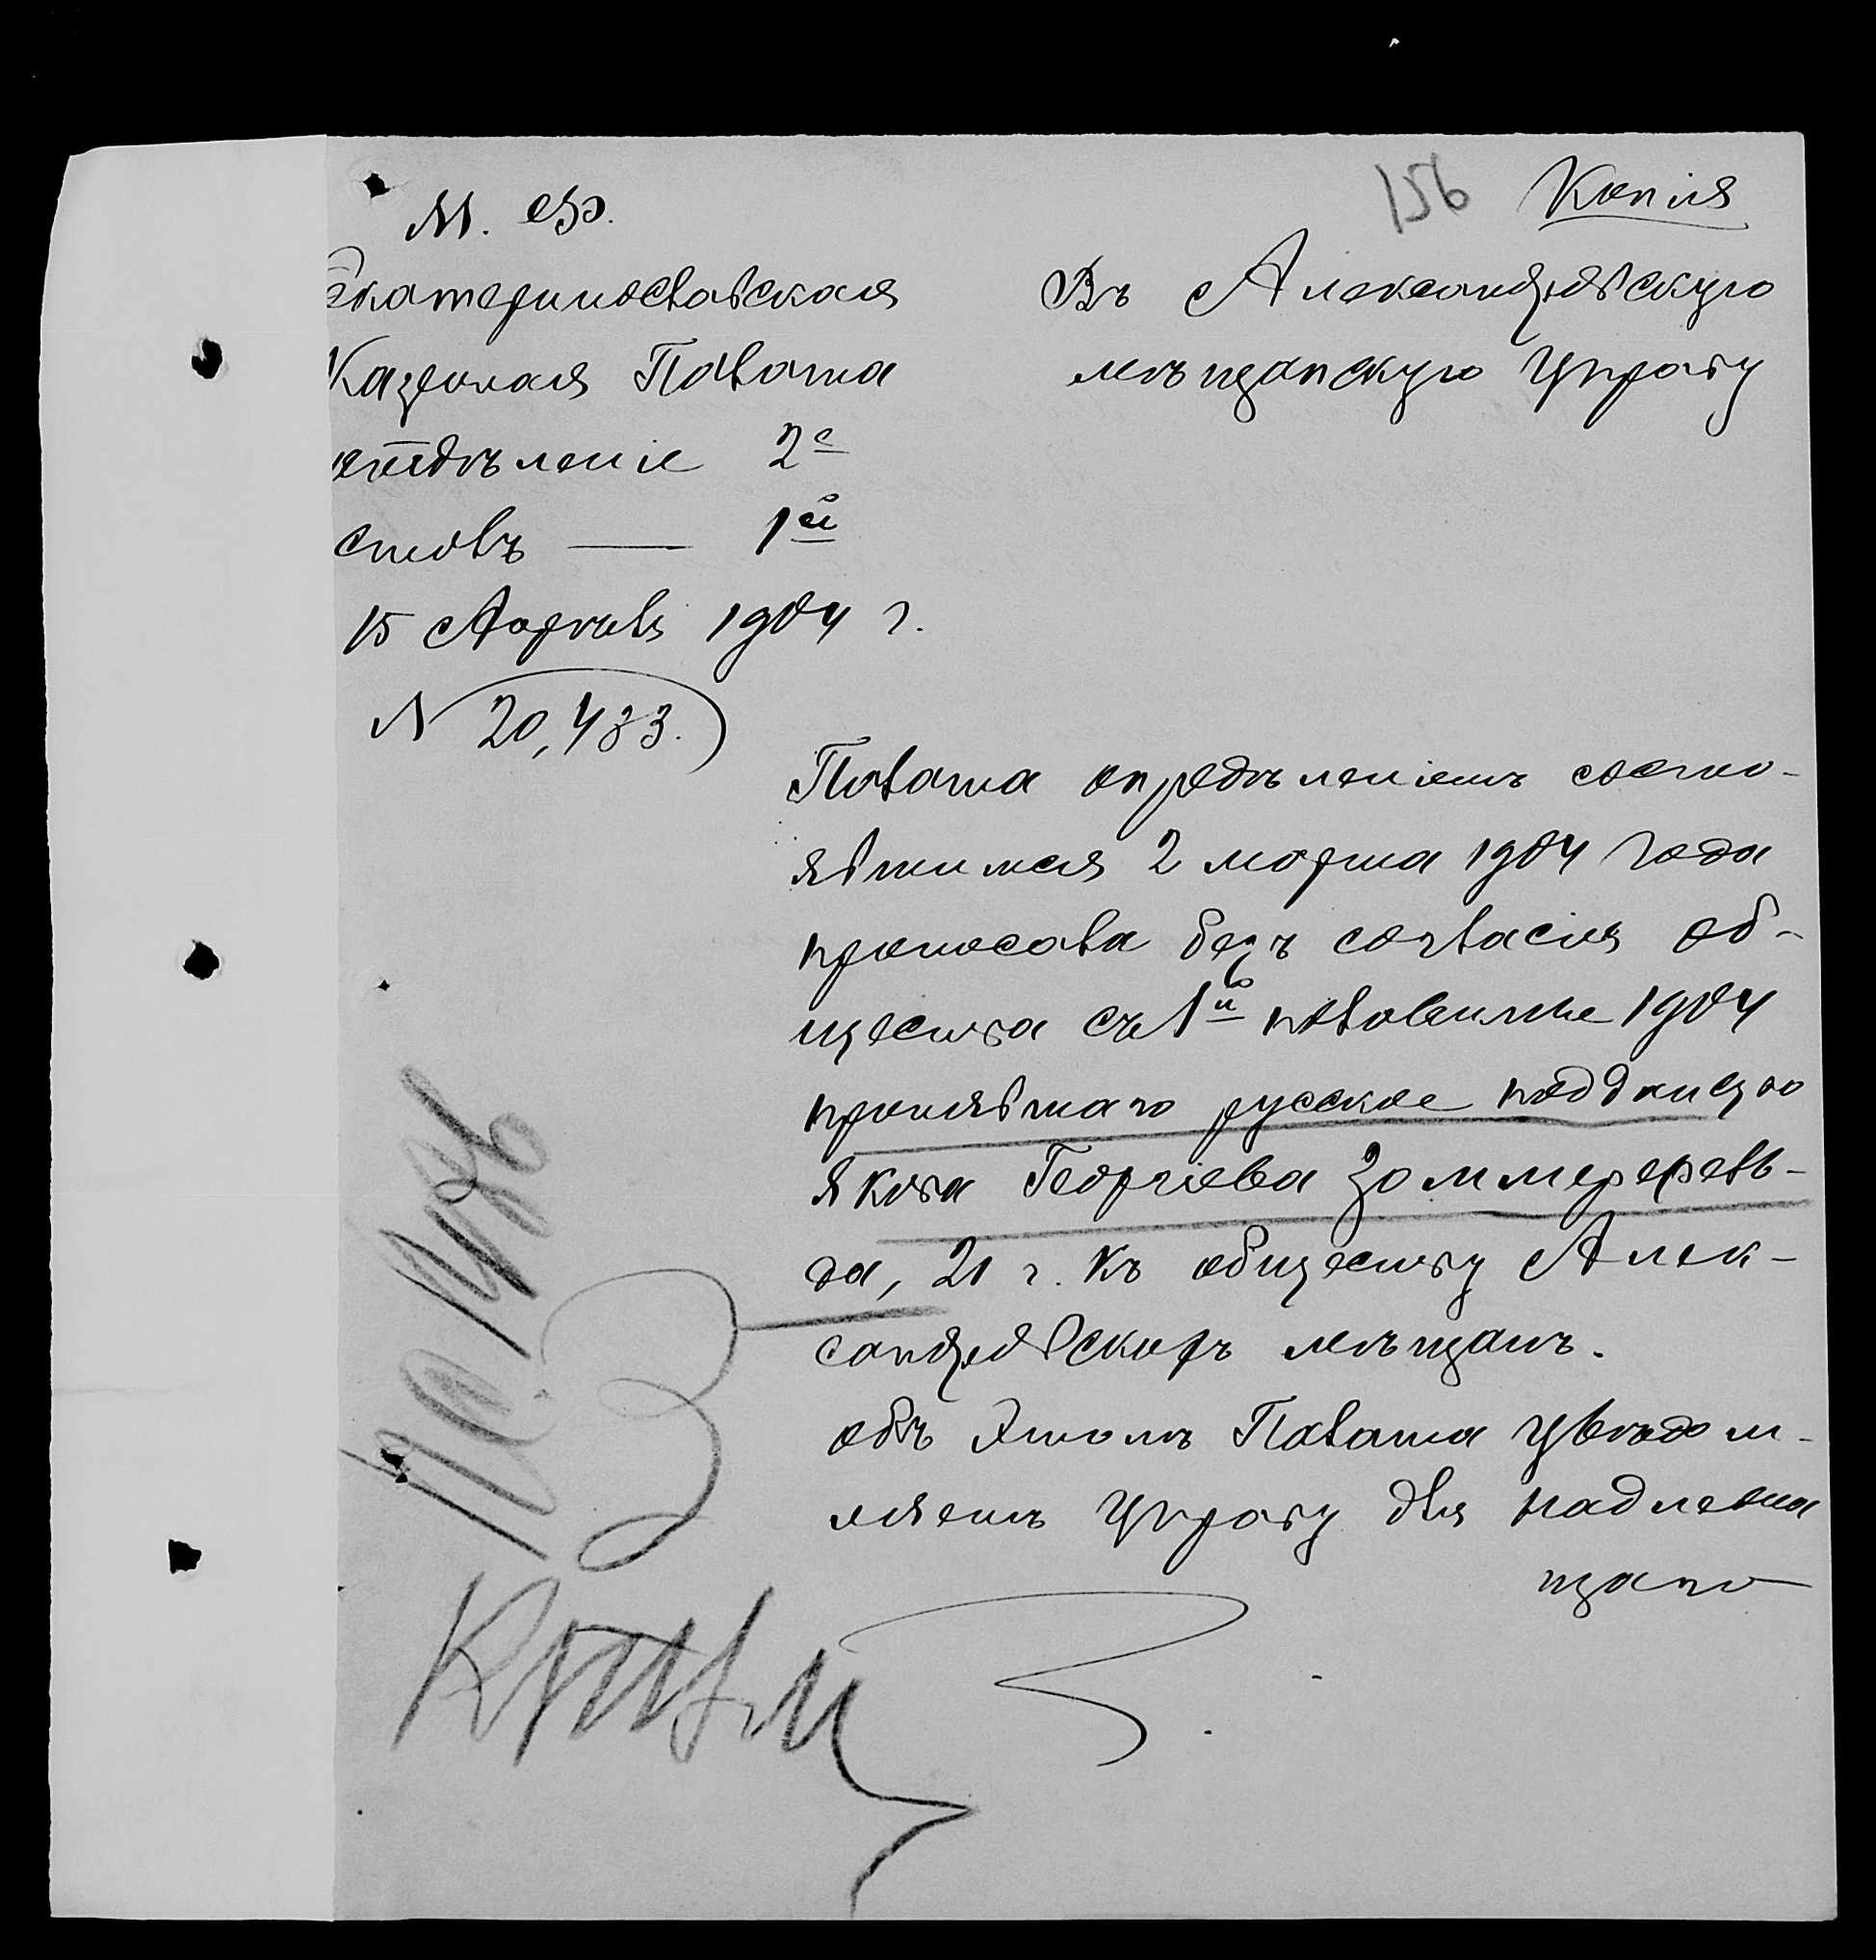 156 Копія
М. Ф.
Екатеринославская
Казенная Палата
отдѣленіе 2е
столъ — 1й
15 Апрѣля 1904 г.
N 20,483.
Въ Александровскую
мѣщанскую Управу
Палата опредѣленіемъ состо-
явшимся 2 марта 1904 года
приписала безъ согласія об-
щества съ 1й половины 1904
принявшаго русское подданство
Якова Георгіева Зоммерфель-
да, 21 г. къ обществу Алек-
сандровскихъ мѣщанъ.
объ этомъ Палата увѣдом-
ляетъ Управу для надлежа
щаго